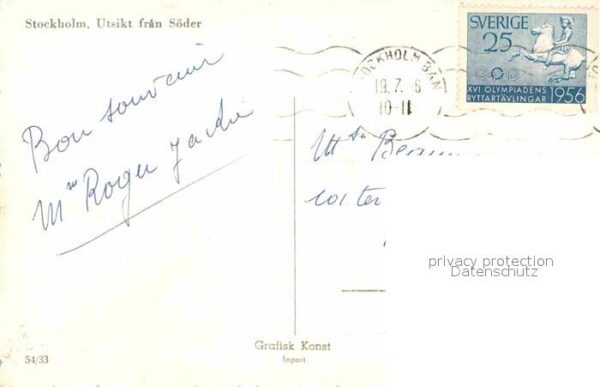 Stockholm, Utsikt från Söder
SVERIGE
25
XVI OLYMPIADENS
RYTTARTÄVLINGAR 1956
STOCKHOLM BAN
19.7. 6
10-11
Bon souvenir
Mme Roger
privacy protection
Datenschutz
Grafisk Konst
Import
54/33